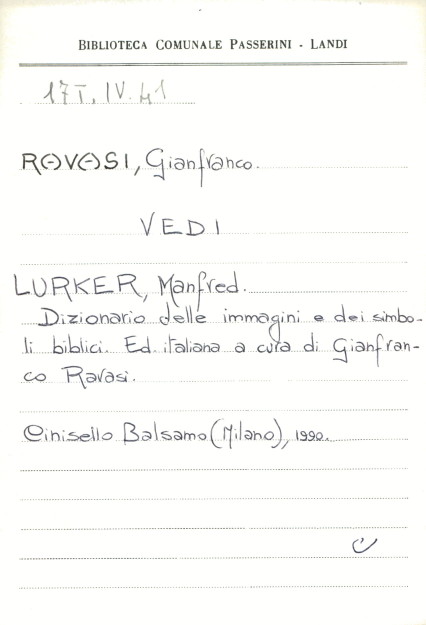 BIBLIOTECA COMUNALE PASSERINI - LANDI
17 T. IV. 41
RAVASI, Gianfranco.
VEDI
LURKER, Manfred.
Dizionario delle immagini e dei simbo-
li biblici. Ed. italiana a cura di Gianfran-
co Ravasi.
Cinisello Balsamo (Milano), 1990.